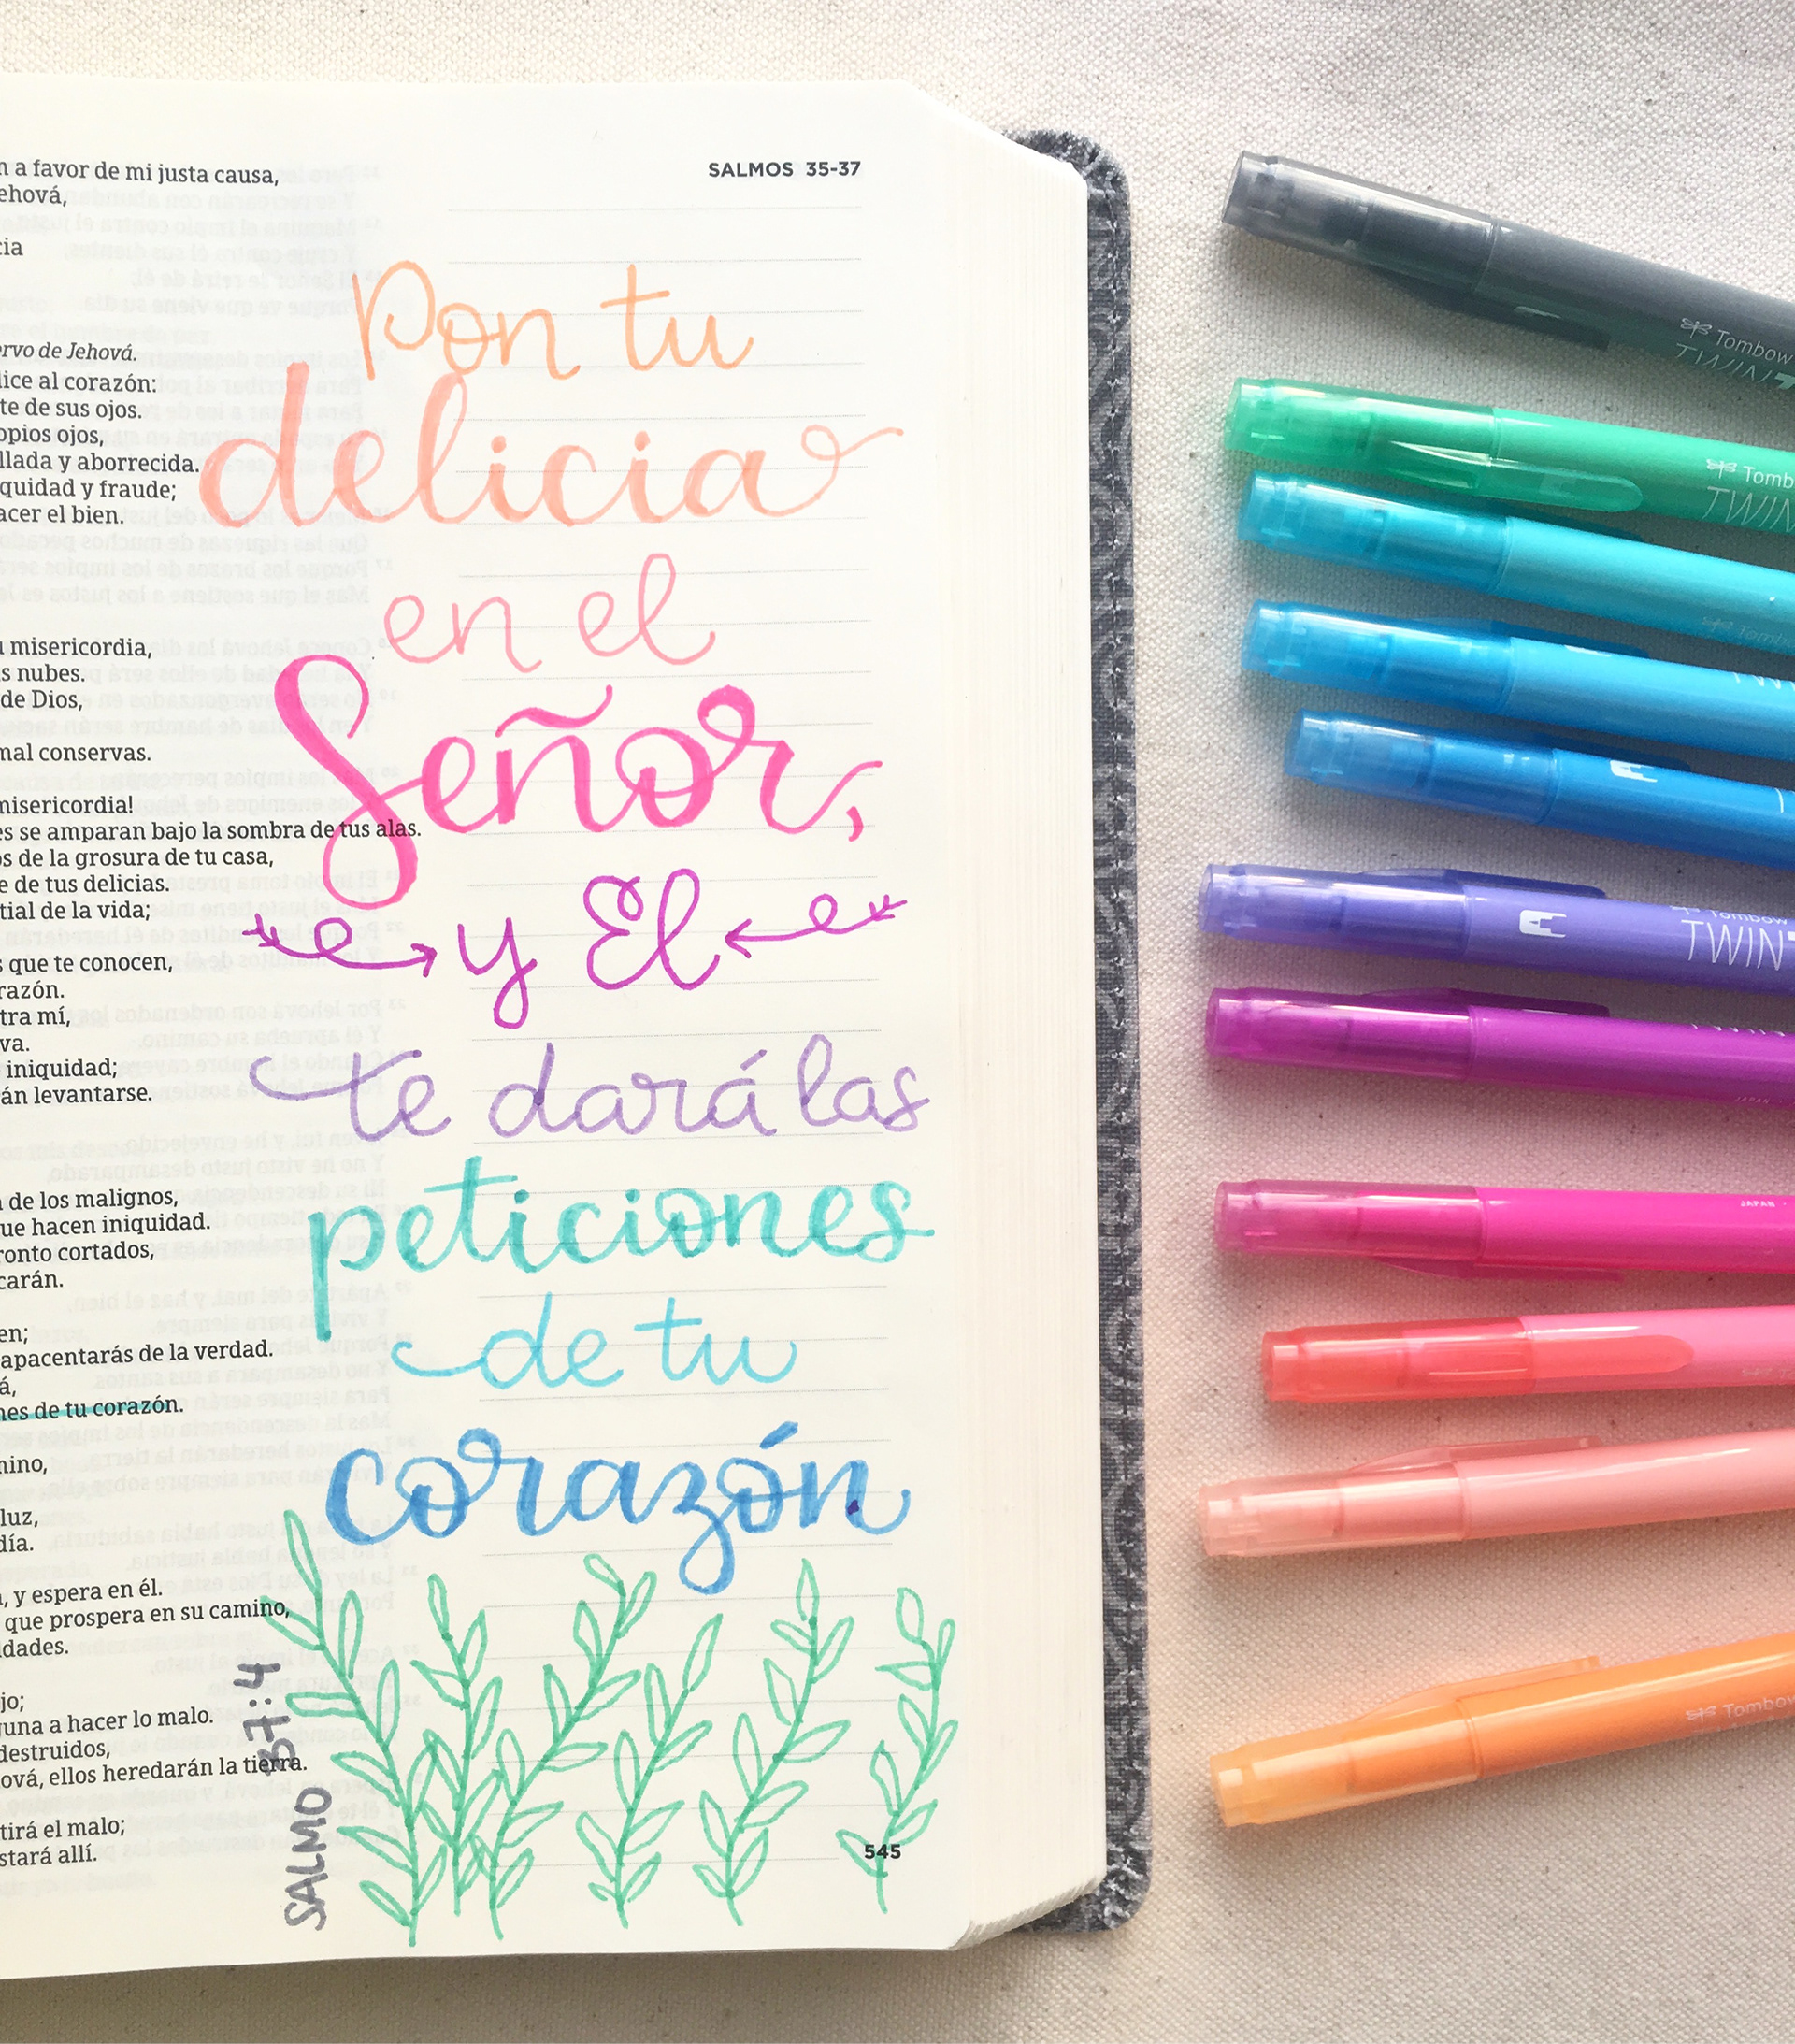 SALMOS 35-37
a favor de mi justa causa,
ehová,
cia
ervo de Jehová.
dice al corazón:
te de sus ojos.
opios ojos,
llada y aborrecida.
quidad y fraude;
acer el bien.
misericordia,
s nubes.
de Dios,
mal conservas.
misericordia!
es se amparan bajo la sombra de tus alas.
os de la grosura de tu casa,
e de tus delicias.
tial de la vida;
s que te conocen,
razón.
tra mí,
va.
iniquidad;
án levantarse.
de los malignos,
que hacen iniquidad.
ronto cortados,
carán.
en;
apacentarás de la verdad.
á,
nes de tu corazón.
mino,
luz,
día.
, y espera en él.
que prospera en su camino,
ldades.
jo;
una a hacer lo malo.
destruidos,
ová, ellos heredarán la tierra.
tirá el malo;
stará allí.
Pon tu
delicia
en el
Señor,
y Él
te dará las
peticiones
de tu
corazón
SALMO 37:4
545
Tombow
TWIN
Tomb
TWIN
Tombow
Tombow
TWIN
JAPAN
JAPAN
Tombow